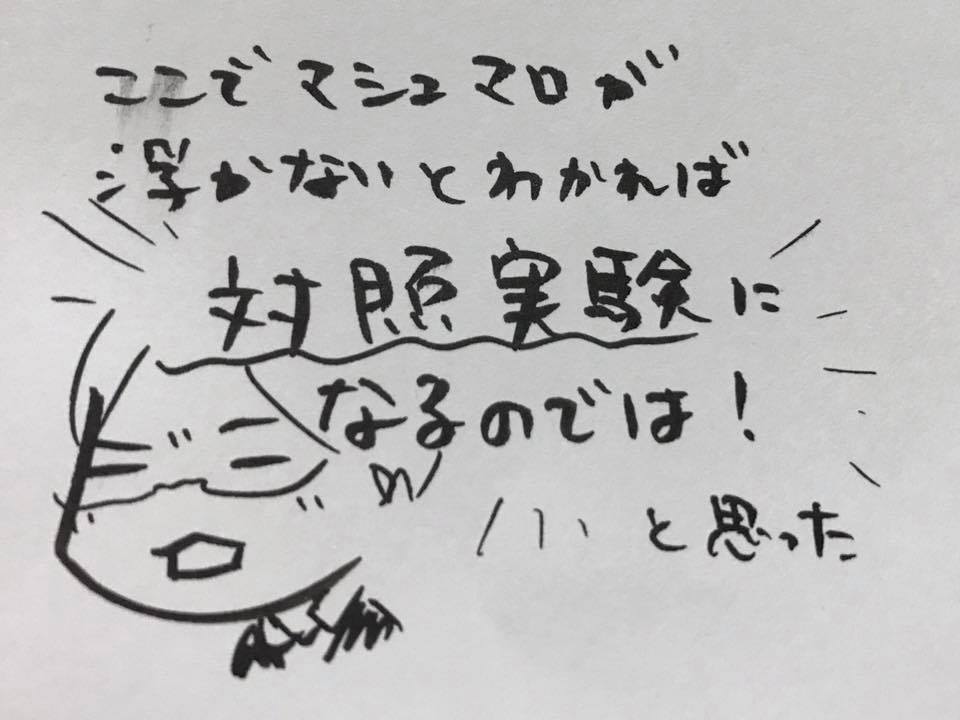 ここでマシュマロが
浮かないとわかれば
対照実験に
なるのでは！
と思った